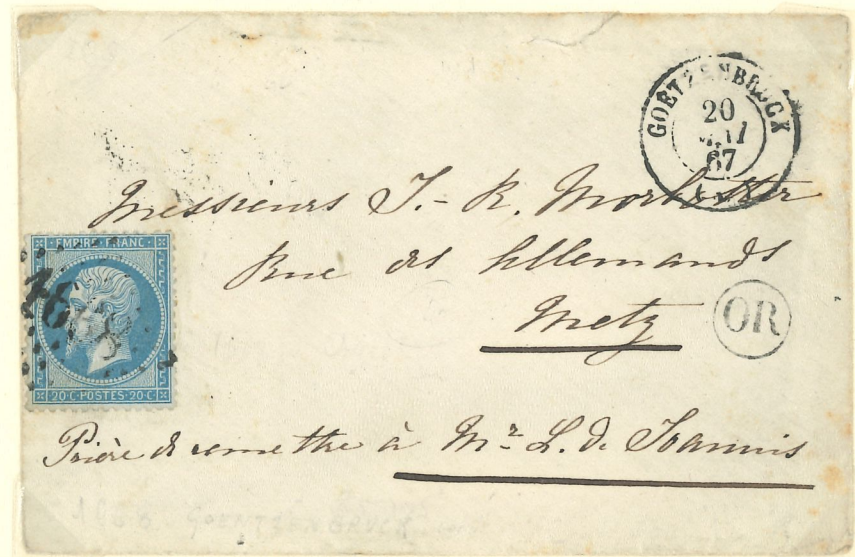 GOETZENBRUCK
20
MAI
67
Messieurs J.-R.
Rue des Allemands
Metz
OR
EMPIRE FRANC
1668
20 C POSTES 20 C
Prière de remettre à Mr L. de Joannis
1668 GOETZENBRUCK